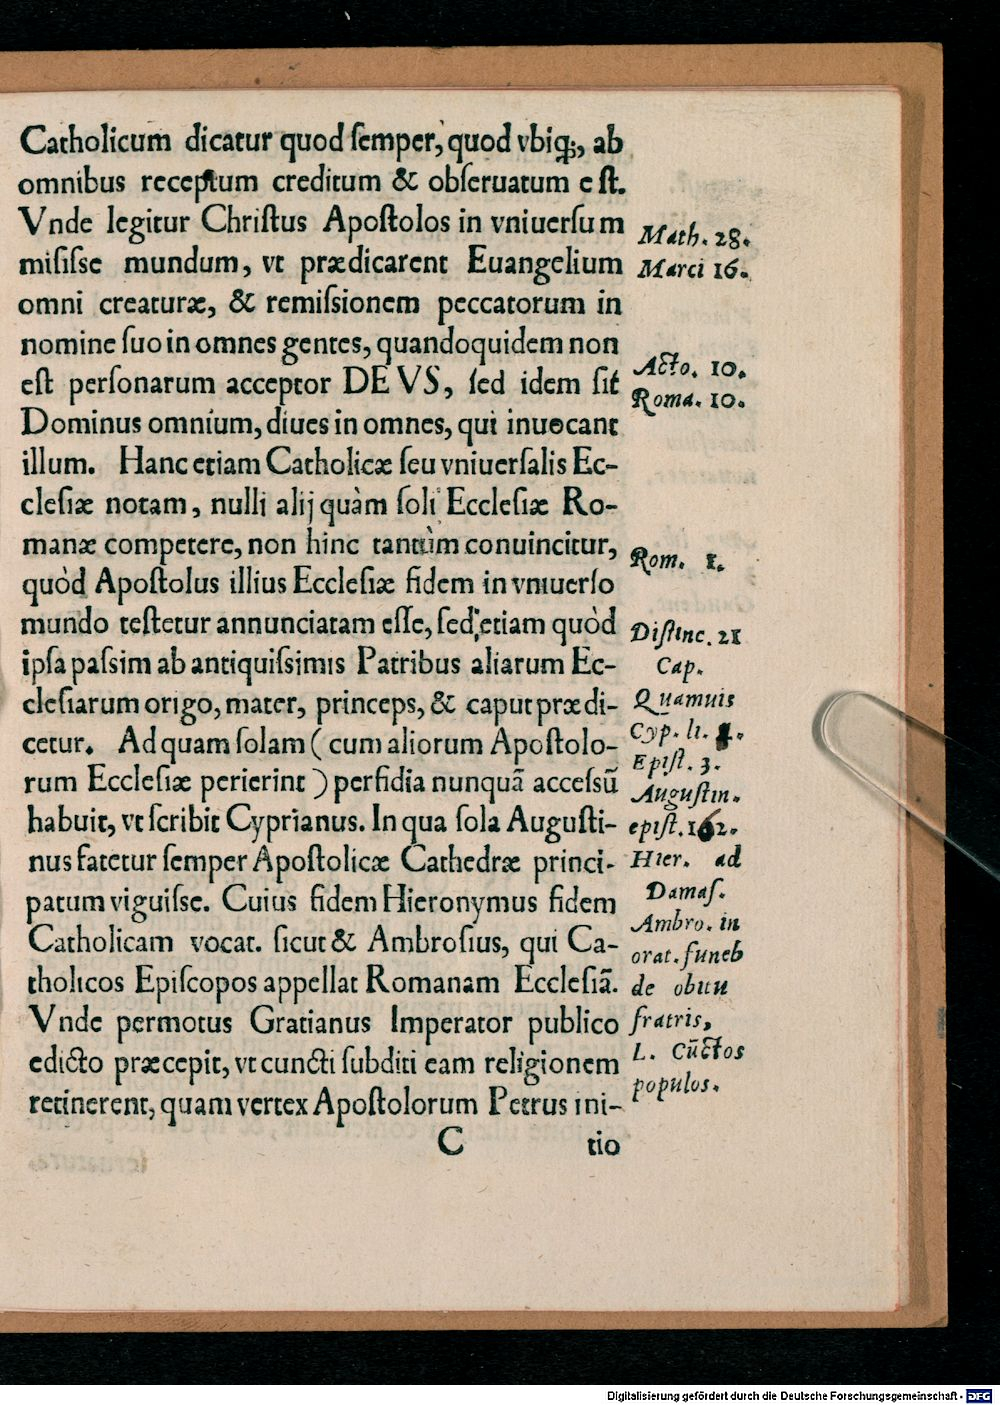 Catholicum dicatur quod ſemper, quod vbiq;, ab
omnibus receptum creditum & obſeruatum eſt.
Vnde legitur Chriſtus Apoſtolos in vniuerſum
miſiſse mundum, vt prædicarent Euangelium
omni creaturæ, & remiſsionem peccatorum in
nomine ſuo in omnes gentes, quandoquidem non
eſt perſonarum acceptor DEVS, ſed idem ſit
Dominus omnium, diues in omnes, qui inuocant
illum. Hanc etiam Catholicæ ſeu vniuerſalis Ec-
cleſiæ notam, nulli alij quàm ſoli Eccleſiæ Ro-
manæ competere, non hinc tantùm conuincitur,
quòd Apoſtolus illius Eccleſiæ fidem in vniuerſo
mundo teſtetur annunciatam eſſe, ſed etiam quòd
ipſa paſsim ab antiquiſsimis Patribus aliarum Ec-
cleſiarum origo, mater, princeps, & caput prædi-
cetur. Ad quam ſolam (cum aliorum Apoſtolo-
rum Eccleſiæ perierint) perfidia nunquã acceſsũ
habuit, vt ſcribit Cyprianus. In qua ſola Auguſti-
nus fatetur ſemper Apoſtolicæ Cathedræ princi-
patum viguiſse. Cuius fidem Hieronymus fidem
Catholicam vocat. ſicut & Ambroſius, qui Ca-
tholicos Epiſcopos appellat Romanam Eccleſiã.
Vnde permotus Gratianus Imperator publico
edicto præcepit, vt cuncti ſubditi eam religionem
retinerent, quam vertex Apoſtolorum Petrus ini-
C tio
Math. 28.
Marci 16.
Acto. 10.
Roma. 10.
Rom. 1.
Diſtinc. 21
Cap.
Quamuis
Cyp. li. 1.
Epiſt. 3.
Auguſtin.
epiſt. 162.
Hier. ad
Damaſ.
Ambro. in
orat. funeb
de obitu
fratris,
L. Cũctos
populos.
Digitalisierung gefördert durch die Deutsche Forschungsgemeinschaft - DFG